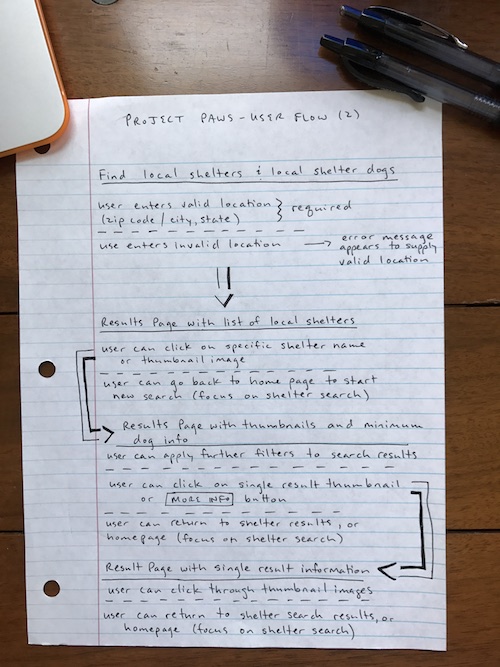 PROJECT PAWS - USER FLOW (2)
Find local shelters & local shelter dogs
user enters valid location } required
(zip code / city, state)
use enters invalid location → error message
appears to supply
valid location
Results Page with list of local shelters
user can click on specific shelter name
or thumbnail image
user can go back to home page to start
new search (focus on shelter search)
Results Page with thumbnails and minimum
dog info
user can apply further filters to search results
user can click on single result thumbnail
or MORE INFO button
user can return to shelter results, or
homepage (focus on shelter search)
Result Page with single result information
user can click through thumbnail images
user can return to shelter search results, or
homepage (focus on shelter search)